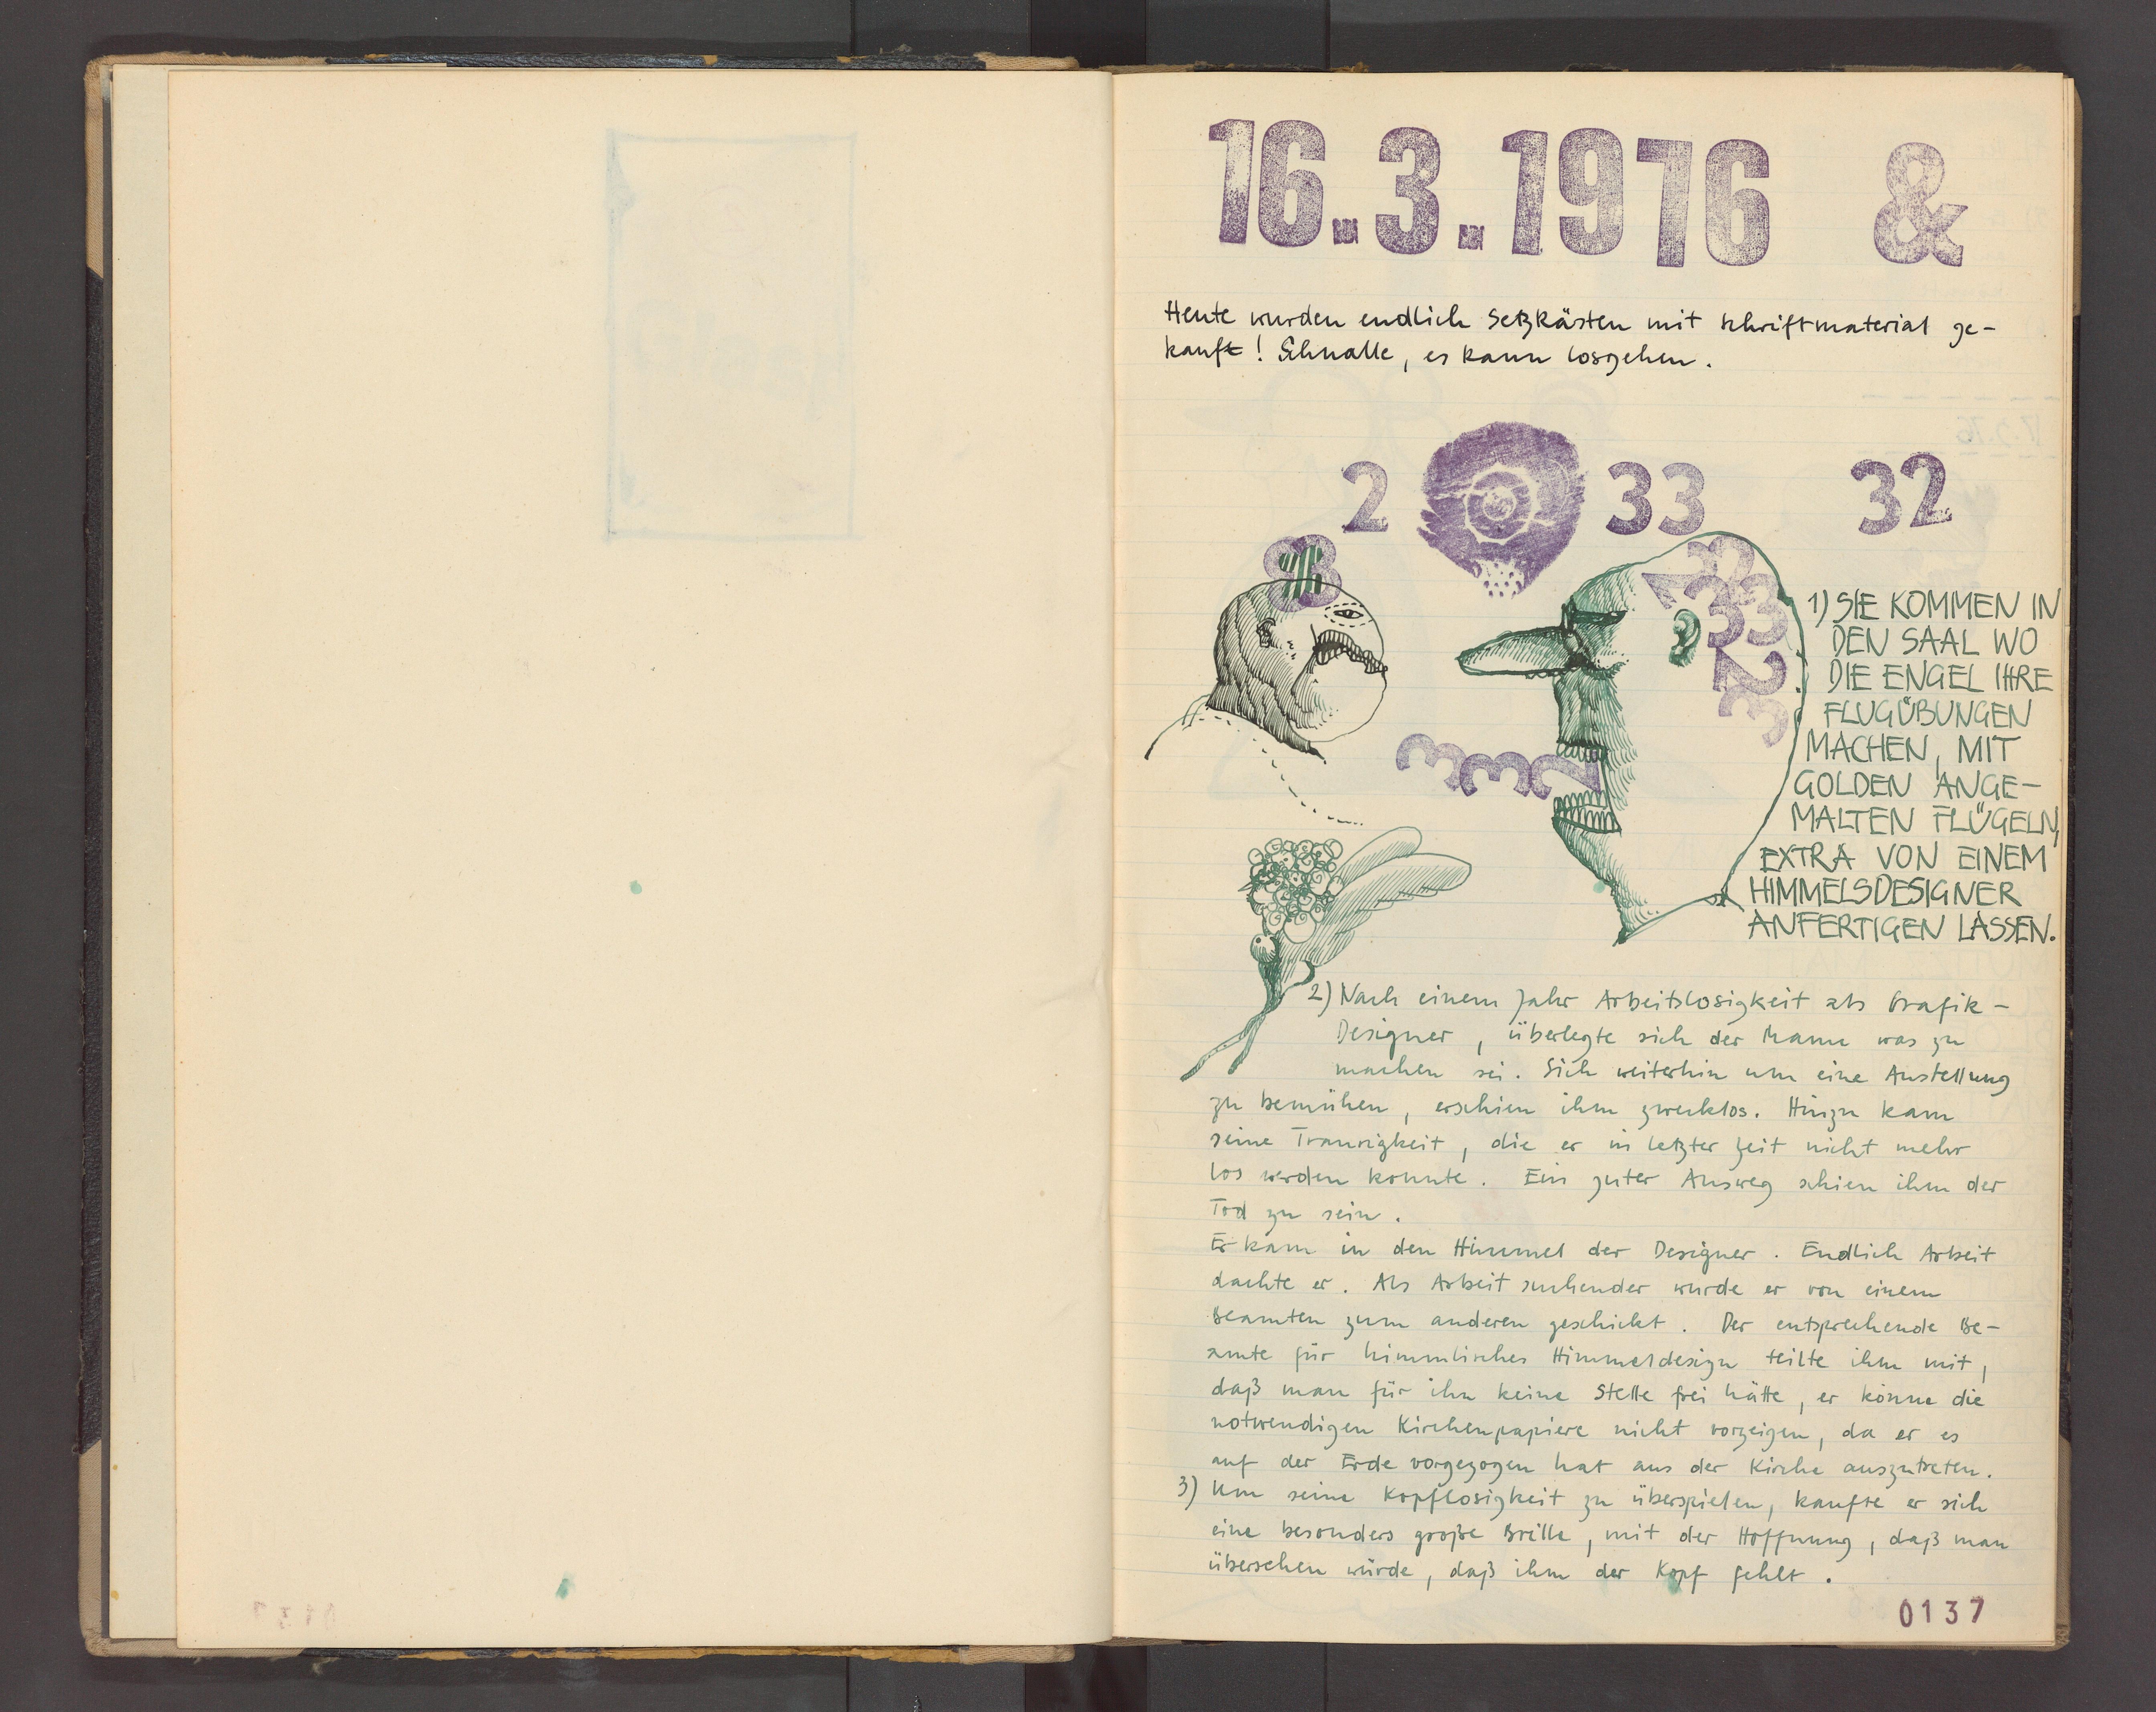 16.3.1976 &
Heute wurden endlich Setzkästen mit Schriftmaterial ge-
kauft! Schnalle, es kann losgehen.
2 33 32
1) SIE KOMMEN IN
DEN SAAL WO
DIE ENGEL IHRE
FLUGÜBUNGEN
MACHEN, MIT
GOLDEN ANGE-
MALTEN FLÜGELN,
EXTRA VON EINEM
HIMMELSDESIGNER
ANFERTIGEN LASSEN.
2) Nach einem Jahr Arbeitslosigkeit als Grafik-
Designer, überlegte sich der Mann was zu
machen sei. Sich weiterhin um eine Anstellung
zu bemühen, erschien ihm zwecklos. Hinzu kam
seine Traurigkeit, die er in letzter Zeit nicht mehr
los werden konnte. Ein guter Ausweg schien ihm der
Tod zu sein.
Er kam in den Himmel der Designer. Endlich Arbeit
dachte er. Als Arbeit suchender wurde er von einem
Beamten zum anderen geschickt. Der entsprechende Be-
amte für himmlisches Himmeldesign teilte ihm mit,
daß man für ihn keine Stelle frei hätte, er könne die
notwendigen Kirchenpapiere nicht vorzeigen, da er es
auf der Erde vorgezogen hat aus der Kirche auszutreten.
3) Um seine Kopflosigkeit zu überspielen, kaufte er sich
eine besonders große Brille, mit der Hoffnung, daß man
übersehen würde, daß ihm der Kopf fehlt.
0137